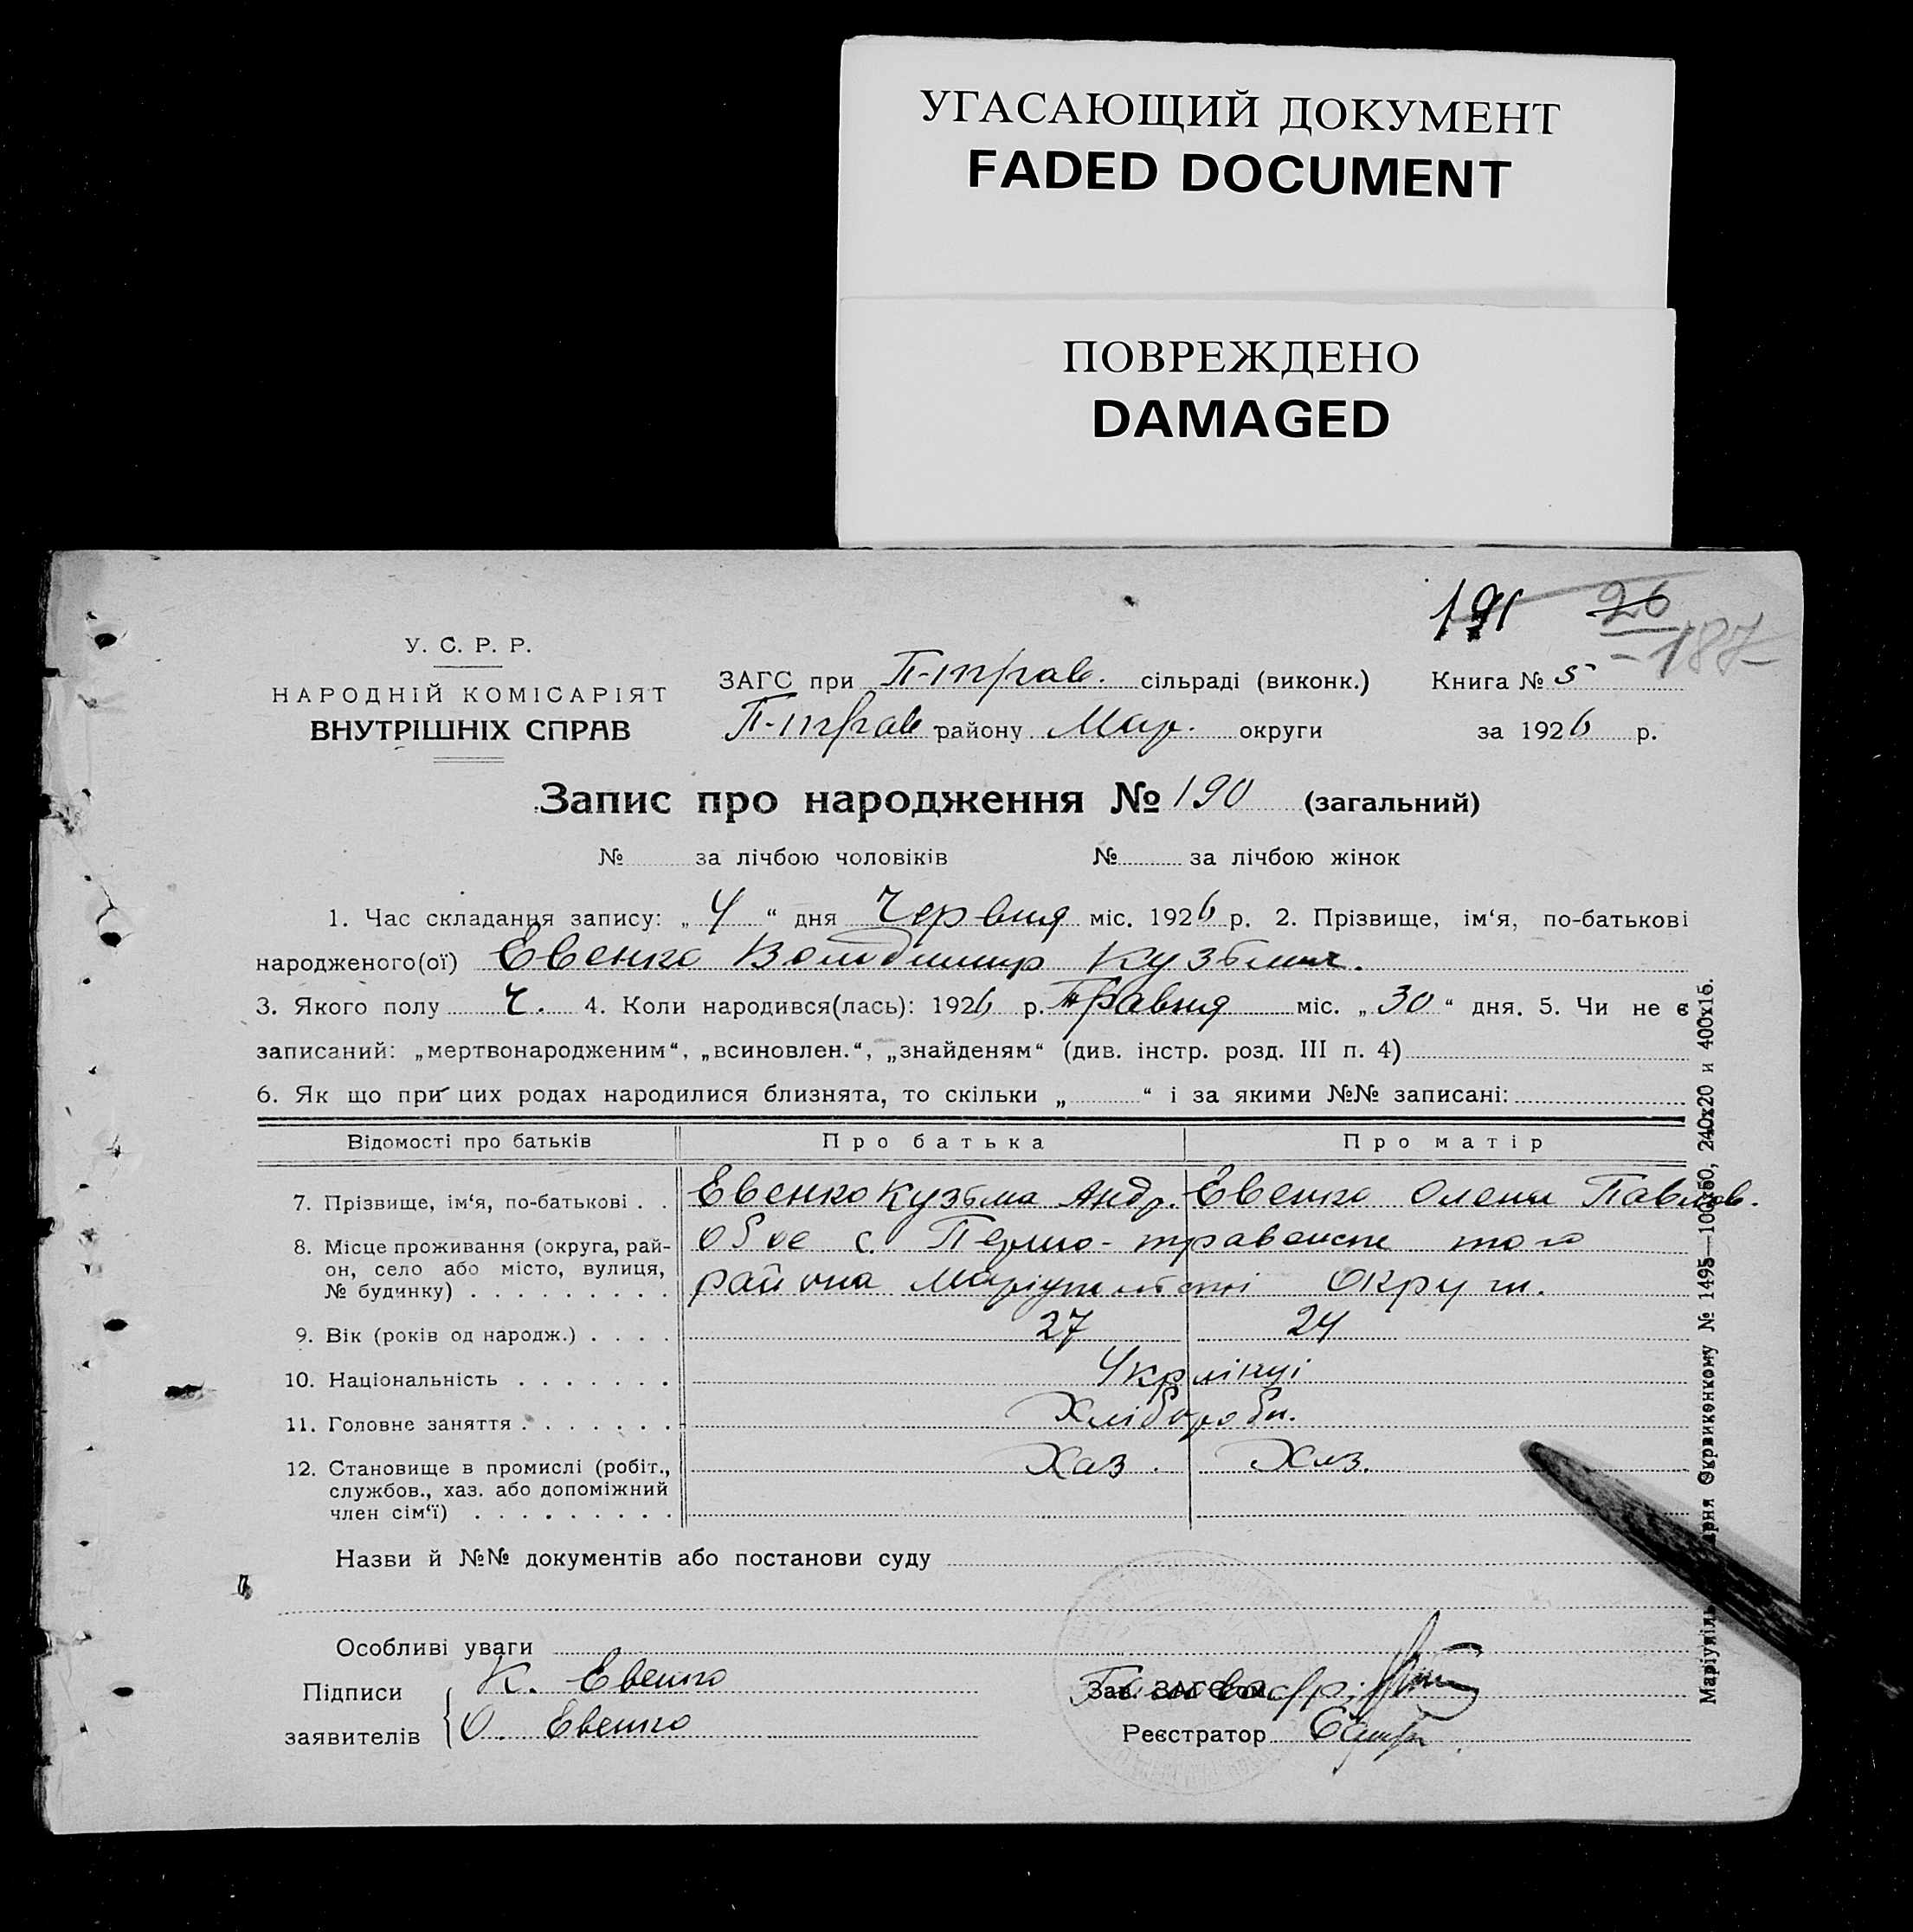 УГАСАЮЩИЙ ДОКУМЕНТ
FADED DOCUMENT
ПОВРЕЖДЕНО
DAMAGED
191 26
-187-
У. С. Р. Р.
НАРОДНІЙ КОМІСАРІЯТ
ВНУТРІШНІХ СПРАВ
ЗАГС при П-трав. сільраді (виконк.) Книга № 5
П-трав району Мар. округи за 1926 р.
Запис про народження № 190 (загальний)
№ за лічбою чоловіків № за лічбою жінок
1. Час складання запису: „ 4 “ дня Червня міс. 1926 р. 2. Прізвище, ім‘я, по-батькові
народженого(ої) Евенко Володимир Кузьмич.
3. Якого полу Ч. 4. Коли народився(лась): 1926 р. Травня міс. „ 30 “ дня. 5. Чи не є
записаний: „мертвонародженим“, „всиновлен.“, „знайденям“ (див. інстр. розд. III п. 4)
6. Як що при цих родах народилися близнята, то скільки „ “ і за якими №№ записані:
Відомості про батьків Про батька Про матір
7. Прізвище, ім‘я, по-батькові . . Евенко Кузьма Андр. Евенко Олена Павлов.
8. Місце проживання (округа, рай- обое с. Першо-травенськ того
он, село або місто, вулиця, района Маріупольскі Округи.
№ будинку) . . . . . . . . .
9. Вік (років од народж.) . . . . 27 24
10. Національність . . . . . . . Україн́ці
11. Головне заняття . . . . . . . Хлібороби.
12. Становище в промислі (робіт., Хаз. Хаз.
службов., хаз. або допоміжний
член сім‘ї) . . . . . . . . .
Назви й №№ документів або постанови суду
Особливі уваги
Підписи К. Евенко Зав. ЗАГСом
заявителів О. Евенко Реєстратор
Маріупіль арня Окрвиконкому № 1495—100х50, 240х20 и 400х15.